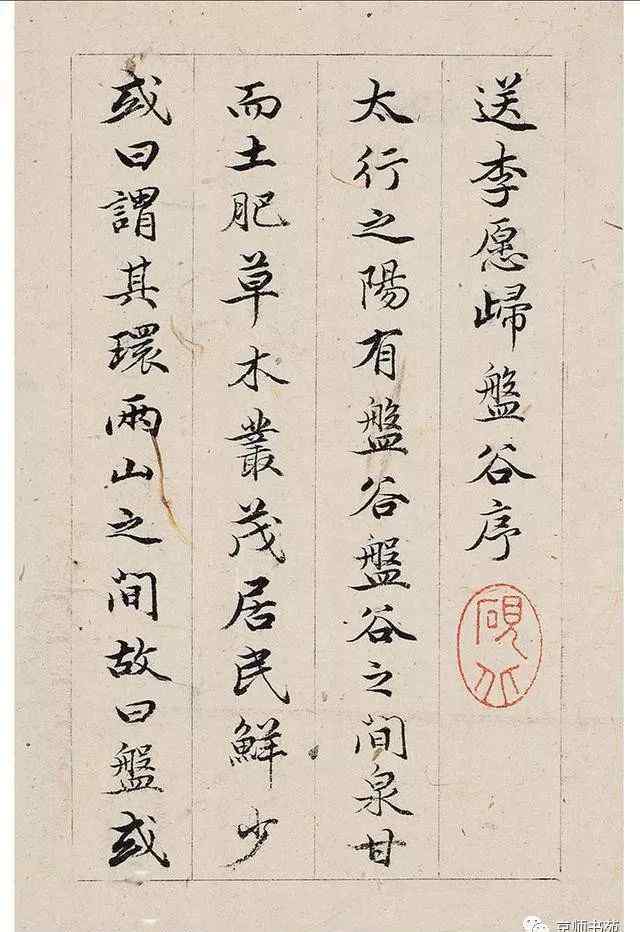 送李愿歸盤谷序
太行之陽有盤谷盤谷之間泉甘
而土肥草木叢茂居民鮮少
或曰謂其環兩山之間故曰盤或